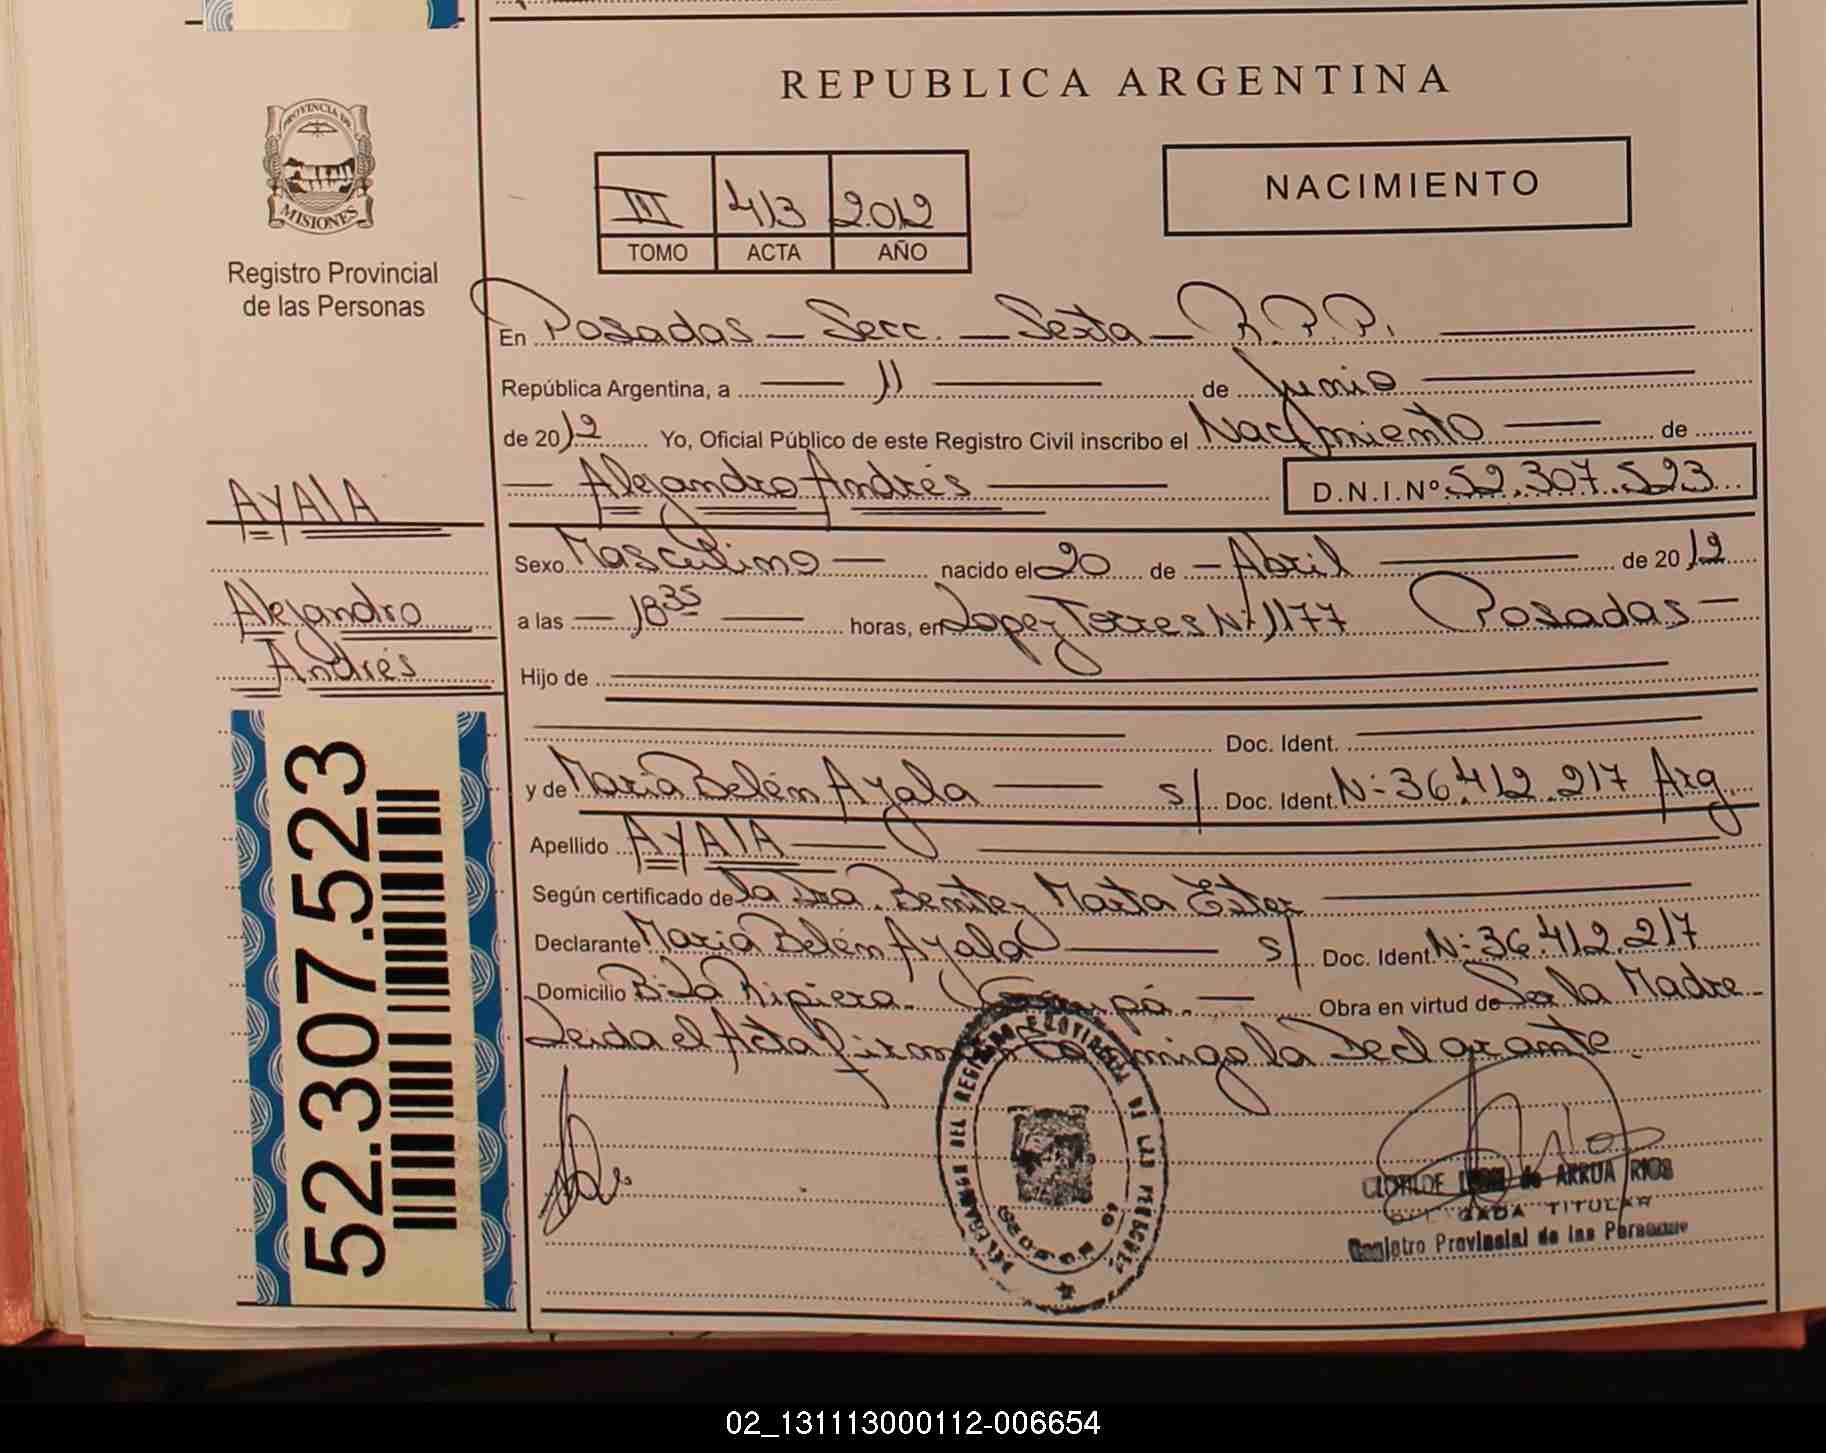 REPUBLICA ARGENTINA
PROVINCIA DE
MISIONES
Registro Provincial
de las Personas
III 413 2012
TOMO ACTA AÑO
NACIMIENTO
En Posadas — Secc. — Sexta — R.P.P.
República Argentina, a 11 de Junio
de 2012 Yo, Oficial Público de este Registro Civil inscribo el Nacimiento de
Alejandro Andrés D.N.I.Nº 52.307.523
AYALA
Alejandro
Andrés
52.307.523
Sexo Masculino — nacido el 20 de — Abril de 2012
a las — 18 35 — horas, en Lopez Torres Nº 1177 Posadas —
Hijo de
Doc. Ident.
y de Maria Belén Ayala — s/ Doc. Ident. Nº 36.412.217 Arg.
Apellido AYALA
Según certificado de la Dra. Benitez Marta Ester
Declarante Maria Belén Ayala — s/ Doc. Ident. Nº 36.412.217
Domicilio Bº La Ripiera. Garupá. — Obra en virtud de Ser la Madre
Leida el Acta firma conmigo la Declarante.
DELEGACION DEL REGISTRO PROVINCIAL DE LAS PERSONAS
CLOTILDE de ARRUA RIOS
DELEGADA TITULAR
Registro Provincial de las Personas
02_131113000112-006654